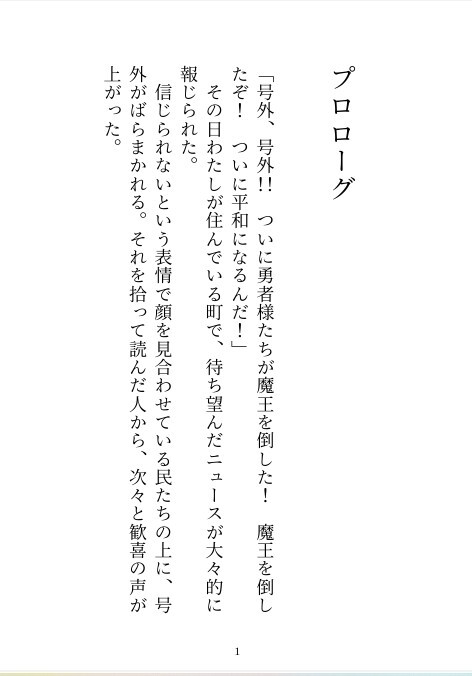 プロローグ
「号外、号外!!　ついに勇者様たちが魔王を倒した！　魔王を倒し
たぞ！　ついに平和になるんだ！」
　その日わたしが住んでいる町で、待ち望んだニュースが大々的に
報じられた。
　信じられないという表情で顔を見合わせている民たちの上に、号
外がばらまかれる。それを拾って読んだ人から、次々と歓喜の声が
上がった。
1